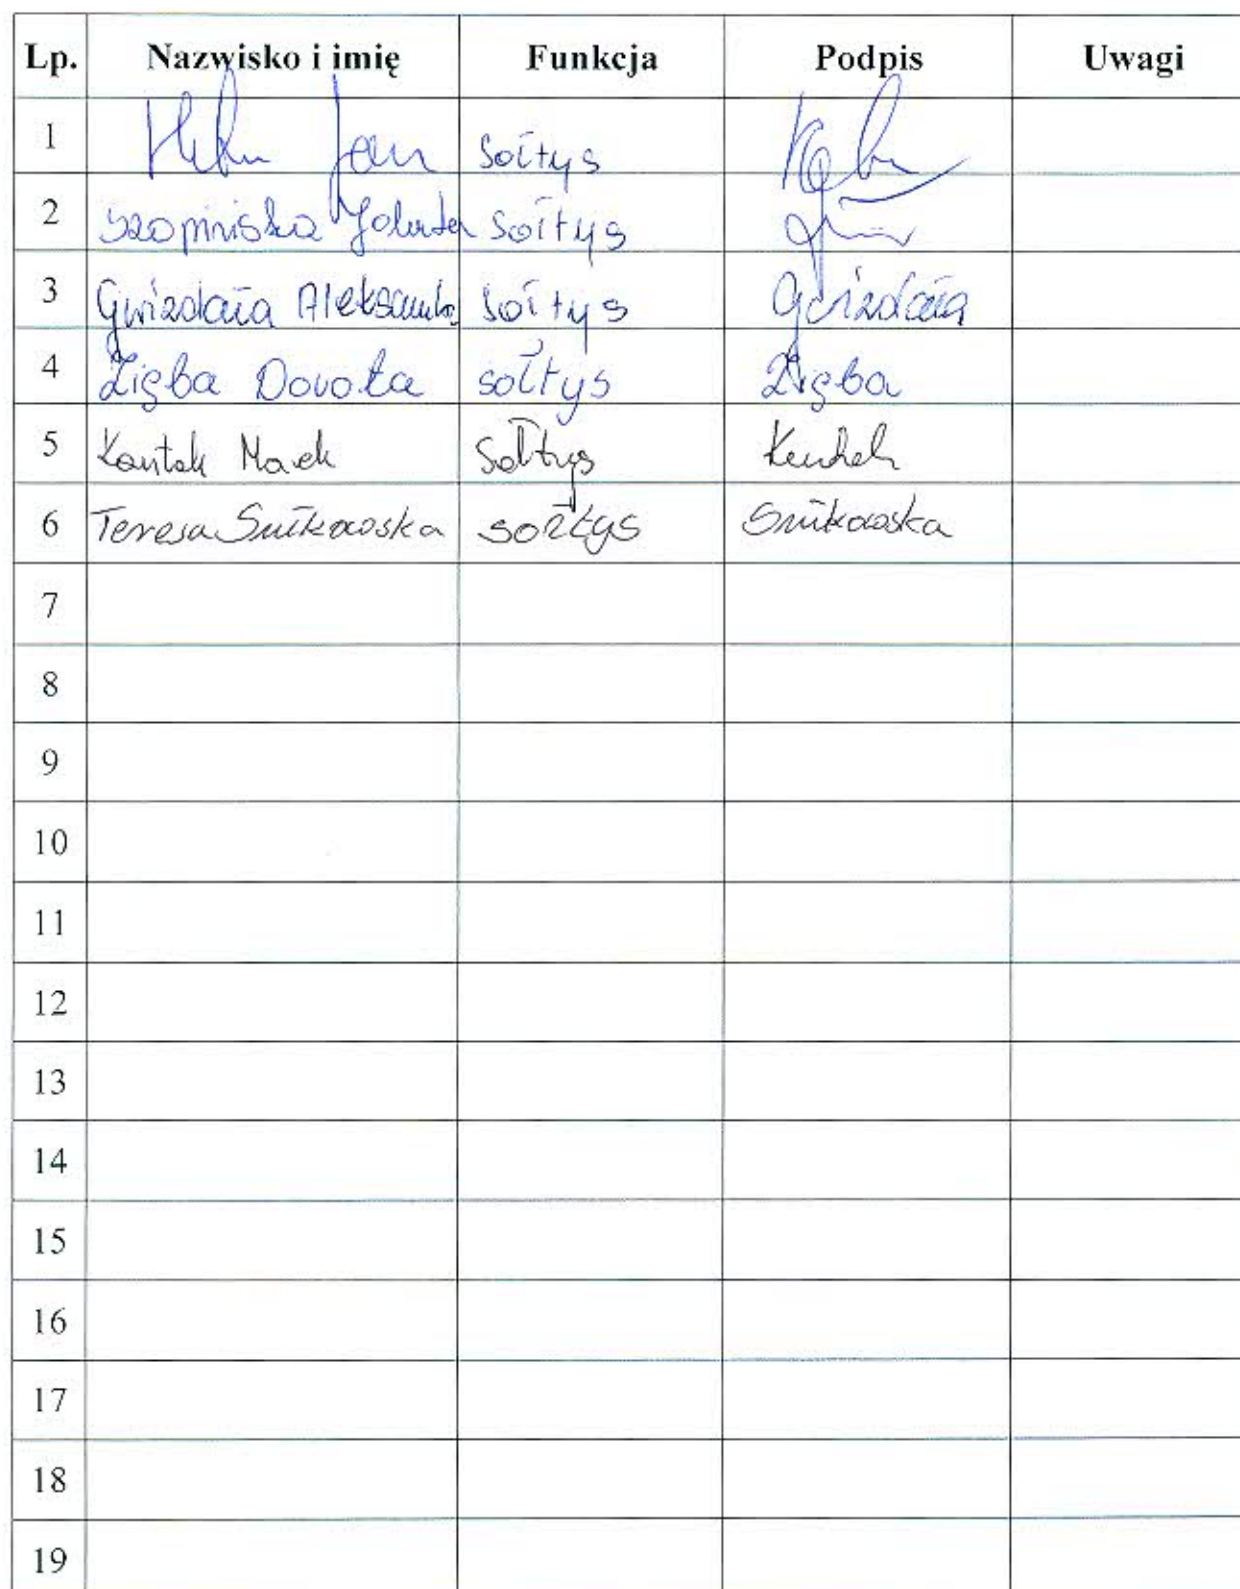 Lp. Nazwisko i imię Funkcja Podpis Uwagi
1 Jan sołtys
2 Szopińska Jolanta sołtys
3 Gwizdała Aleksandra sołtys Gwizdała
4 Zięba Dorota sołtys Zięba
5 Kantak Marek sołtys
6 Teresa Smikowska sołtys Smikowska
7
8
9
10
11
12
13
14
15
16
17
18
19